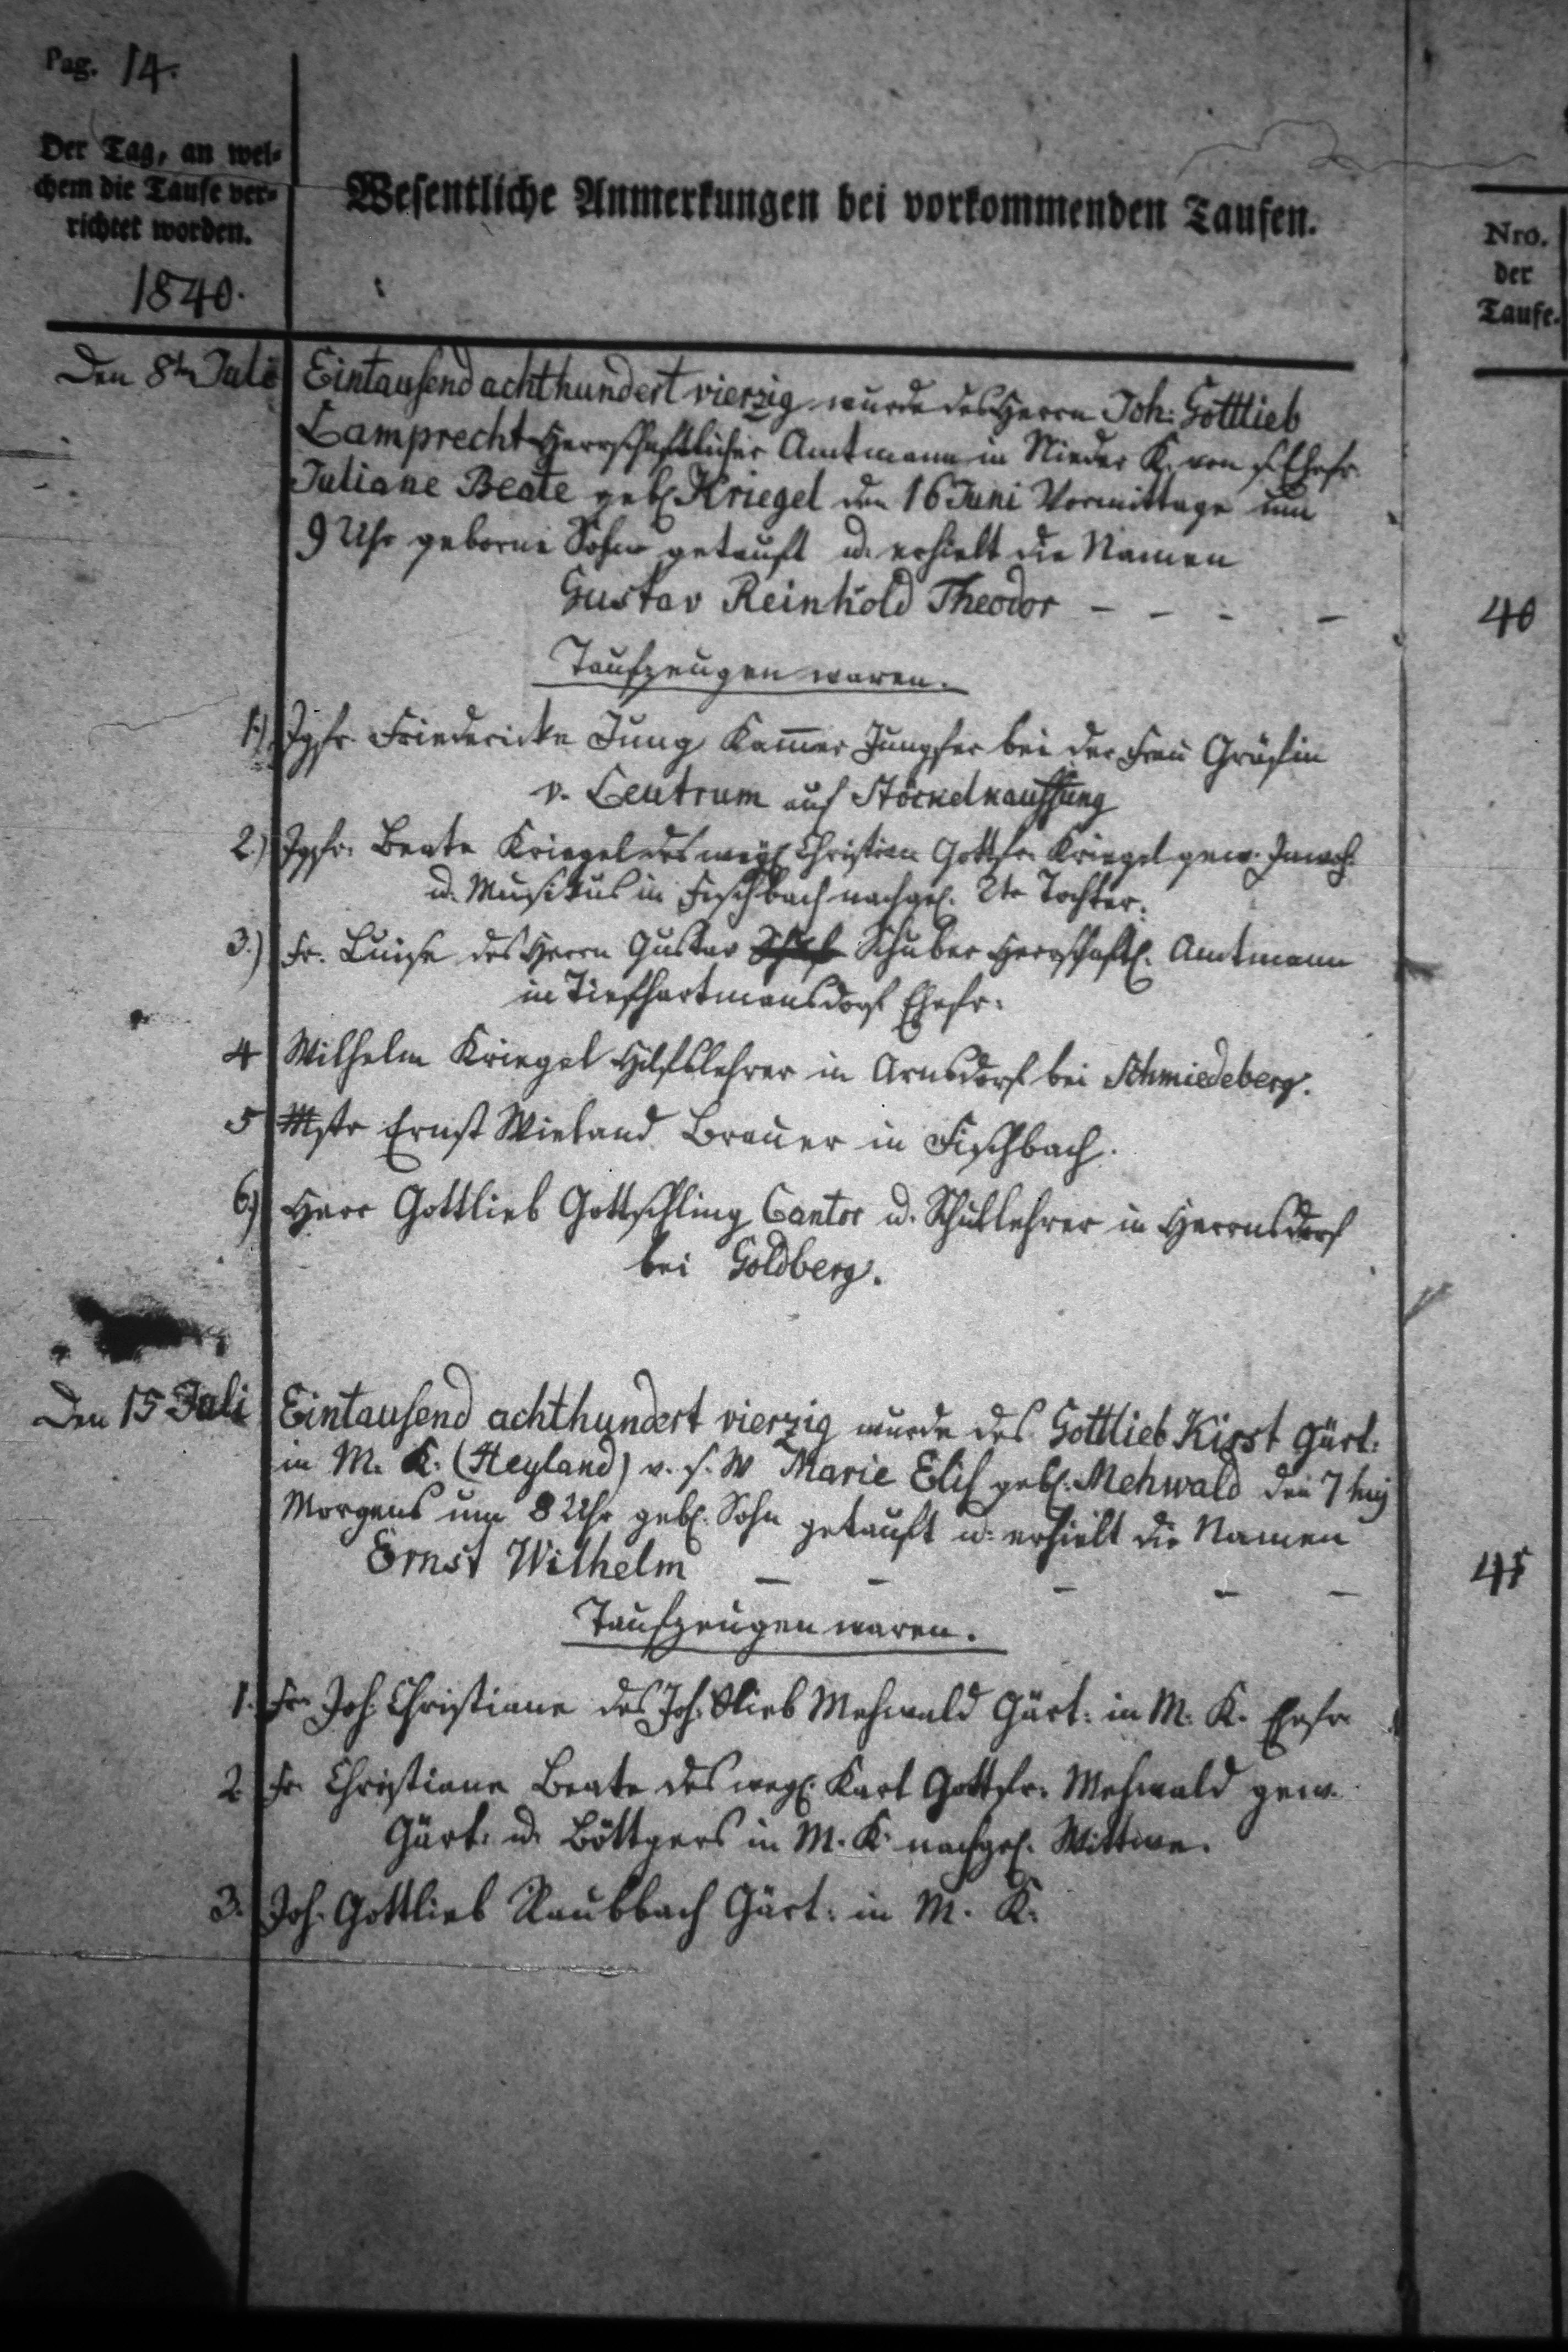 Pag. 14.
Der Tag, an wel-
chem die Taufe ver-
richtet worden.
1840.
Wesentliche Anmerkungen bei vorkommenden Taufen.
Nro.
der
Taufe.
Den 8ten Juli Eintausend achthundert vierzig wurde des Herrn Joh: Gottlieb
Lamprecht Herrschaftlicher Amtmann in Nieder K. von s. Ehefr.
Juliane Beate geb. Kriegel den 16 Juni Vormittags um
9 Uhr geborne Sohn getauft u. erhielt die Namen
Gustav Reinhold Theodor - - - - 40
Taufzeugen waren.
1.) Jgfr. Friedericke Jung Kammer Jungfer bei der Frau Gräfin
v. Leutrum auf Stöckelkauffung
2.) Jgfr. Beate Kriegel des weyl. Christian Gottfr. Kriegel gew. Inwoh.
u. Musikus in Fischbach nachgel. 2te Tochter.
3.) Fr. Luise des Herrn Gustav Schuber Herrschaftl. Amtmann
in Tiefhartmansdorf Ehefr.
4 Wilhelm Kriegel Hilfslehrer in Arnsdorf bei Schmiedeberg.
5 Mstr Ernst Wieland Brauer in Fischbach.
6.) Herr Gottlieb Gottschling Cantor u. Schullehrer in Hermsdorf
bei Goldberg.
Den 15 Juli Eintausend achthundert vierzig wurde des Gottlieb Gärt:
in M. K. (Heyland) v. s. W Marie Elis geb. Mehwald den 7 huj
Morgens um 8 Uhr geb. Sohn getauft u. erhielt die Namen
Ernst Wilhelm - - - - - 41
Taufzeugen waren.
1. Fr. Joh. Christiane des Joh. Glieb Mehwald Gärt: in M. K. Ehfr.
2 Fr. Christiane Beate des weyl. Karl Gottfr. Mehwald gew.
Gärt: u. Böttgers in M. K. nachgel. Wittwe.
3. Joh. Gottlieb Raubbach Gärt: in M. K.